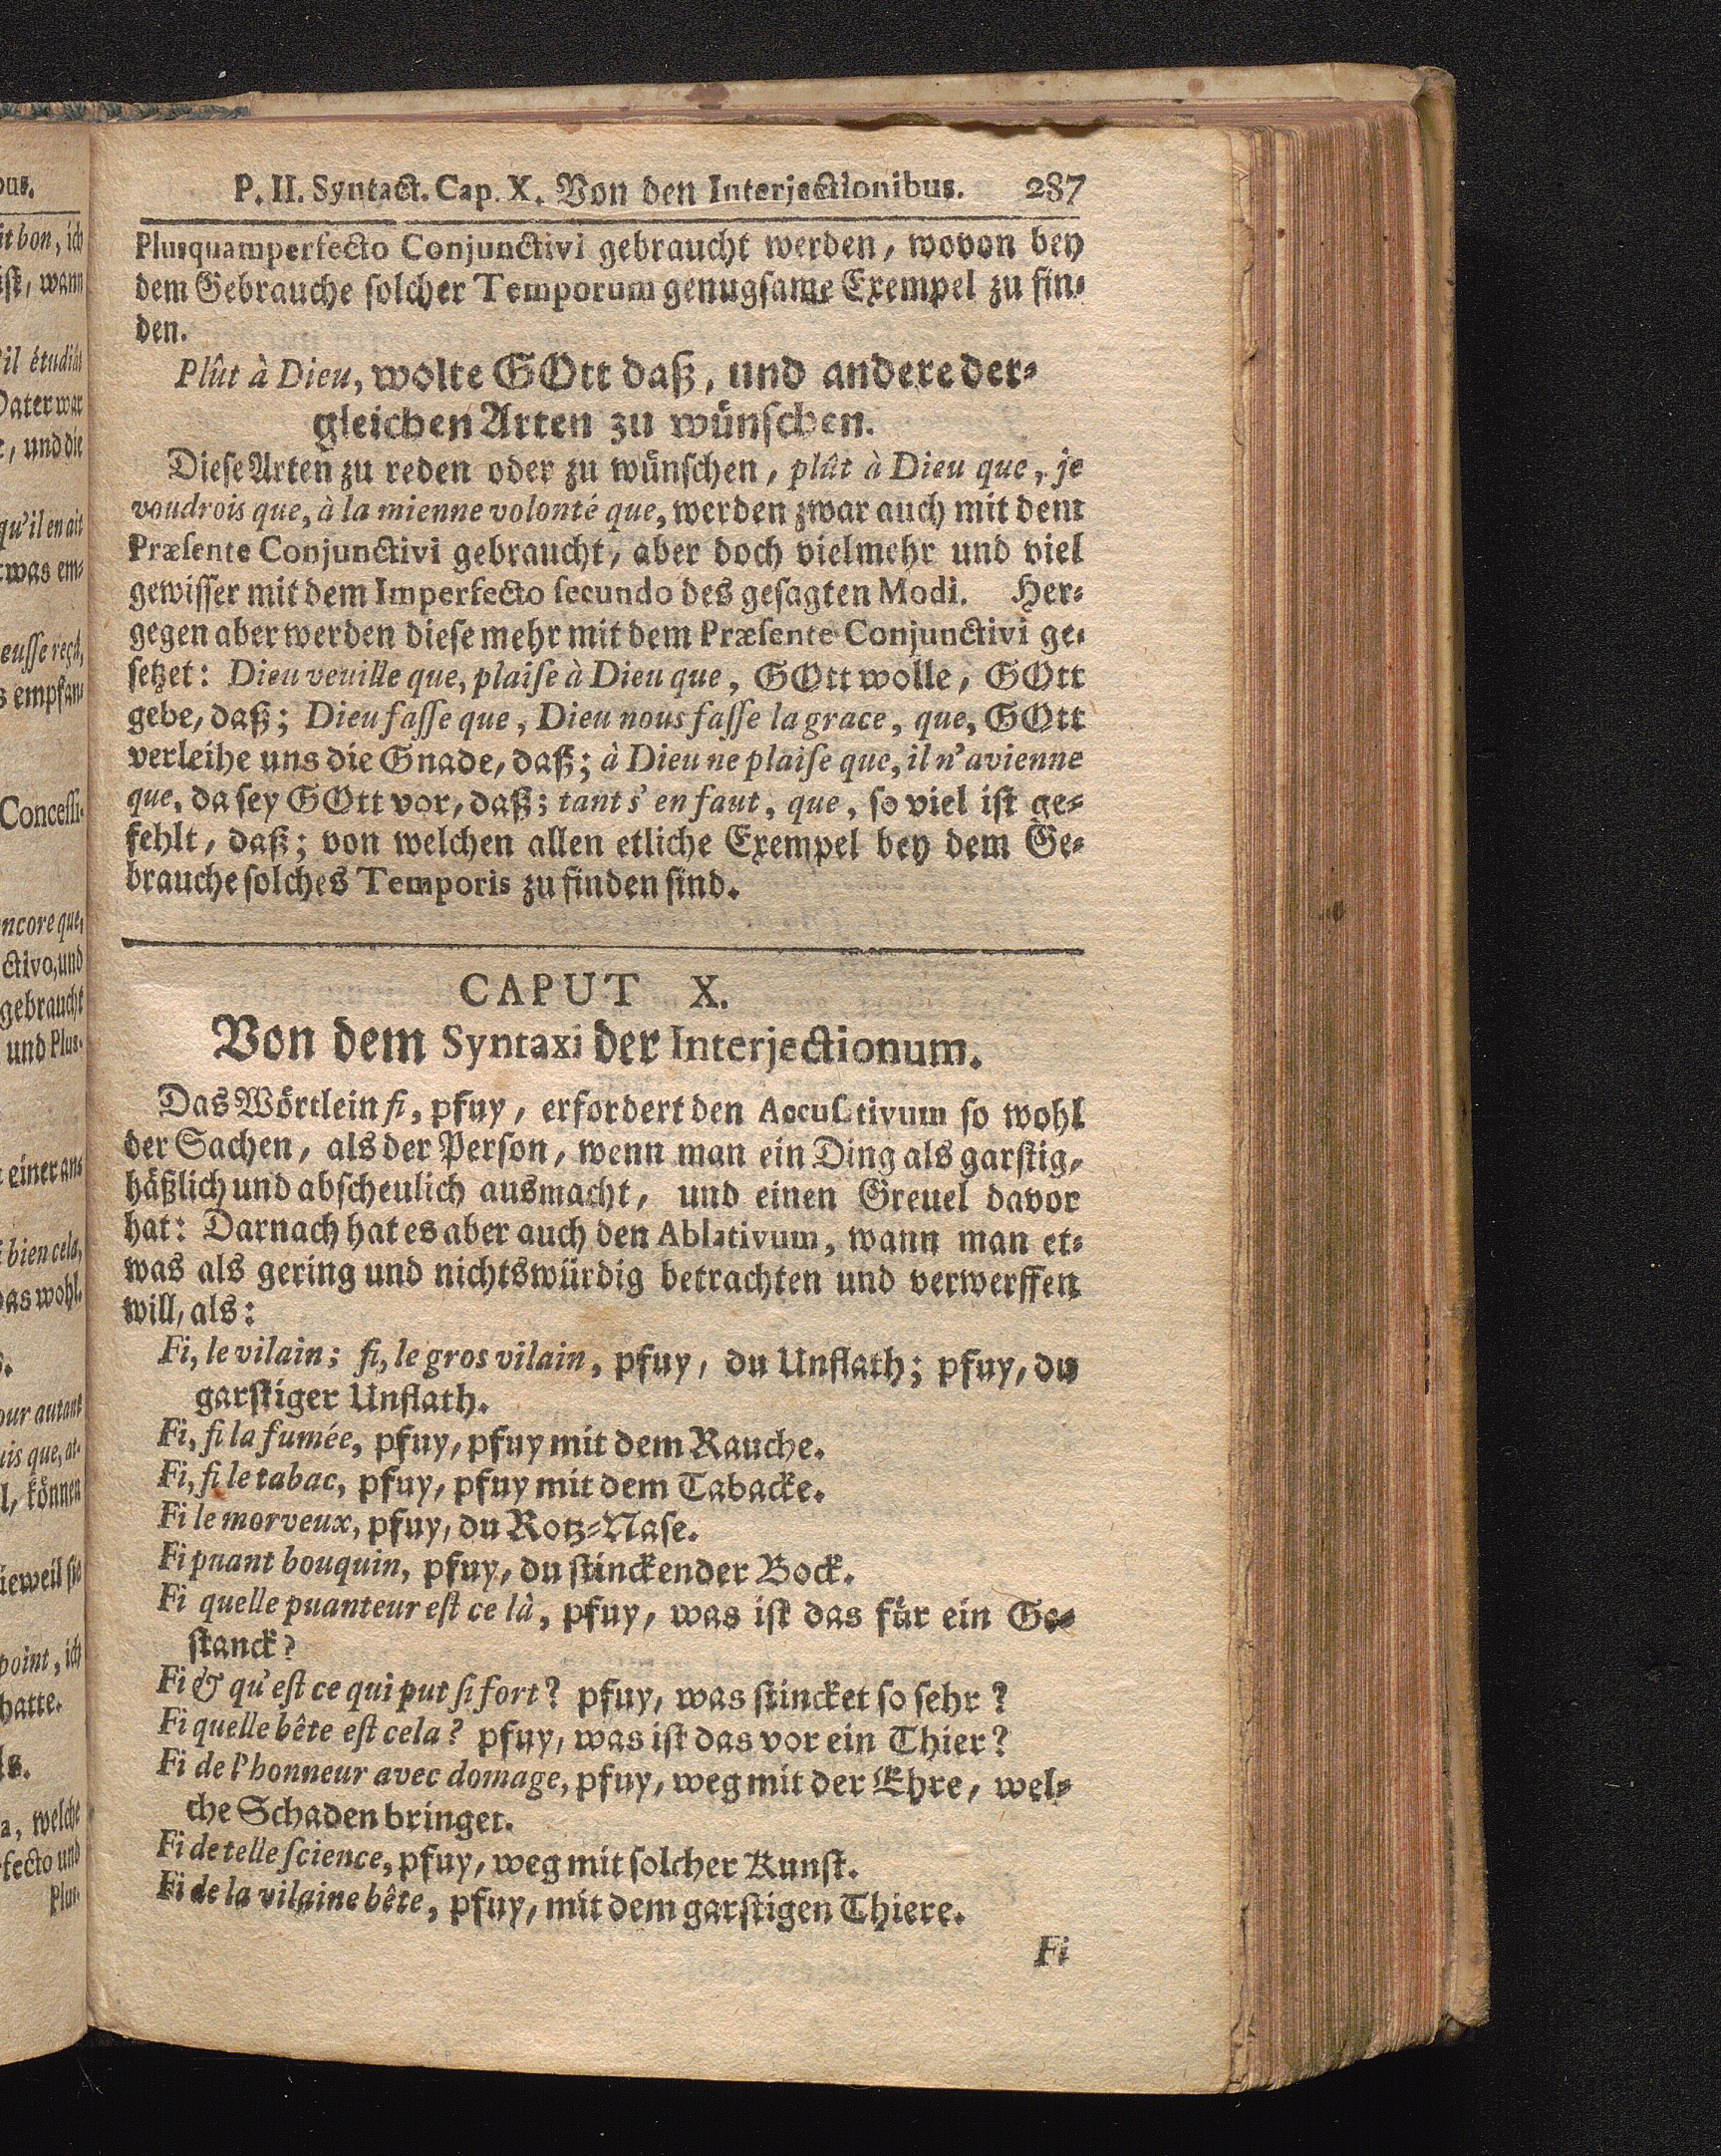 P. II. Syntact. Cap. X. Von den Interjectionibus. 287
Plusquamperfecto Conjunctivi gebraucht werden, wovon bey
dem Gebrauche solcher Temporum genugsame Exempel zu fin-
den.
Plût à Dieu, wolte GOtt daß, und andere der-
gleichen Arten zu wünschen.
Diese Arten zu reden oder zu wünschen, plût à Dieu que, je
voudrois que, à la mienne volonté que, werden zwar auch mit dem
Præsente Conjunctivi gebraucht, aber doch vielmehr und viel
gewisser mit dem Imperfecto secundo des gesagten Modi. Her-
gegen aber werden diese mehr mit dem Præsente Conjunctivi ge-
setzet: Dieu veuille que, plaise à Dieu que, GOtt wolle, GOtt
gebe, daß; Dieu fasse que, Dieu nous fasse la grace, que, GOtt
verleihe uns die Gnade, daß; à Dieu ne plaise que, il n'avienne
que, da sey GOtt vor, daß; tant s'en faut, que, so viel ist ge-
fehlt, daß; von welchen allen etliche Exempel bey dem Ge-
brauche solches Temporis zu finden sind.
CAPUT X.
Von dem Syntaxi der Interjectionum.
Das Wörtlein fi, pfuy, erfordert den Accusativum so wohl
der Sachen, als der Person, wenn man ein Ding als garstig,
häßlich und abscheulich ausmacht, und einen Greuel davor
hat: Darnach hat es aber auch den Ablativum, wann man et-
was als gering und nichtswürdig betrachten und verwerffen
will, als:
Fi, le vilain; fi, le gros vilain, pfuy, du Unflath; pfuy, du
garstiger Unflath.
Fi, fi la fumée, pfuy, pfuy mit dem Rauche.
Fi, fi le tabac, pfuy, pfuy mit dem Tabacke.
Fi le morveux, pfuy, du Rotz-Nase.
Fi puant bouquin, pfuy, du stinckender Bock.
Fi quelle puanteur est ce là, pfuy, was ist das für ein Ge-
stanck?
Fi & qu'est ce qui put si fort? pfuy, was stincket so sehr?
Fi quelle bête est cela? pfuy, was ist das vor ein Thier?
Fi de l'honneur avec domage, pfuy, weg mit der Ehre, wel-
che Schaden bringet.
Fi de telle science, pfuy, weg mit solcher Kunst.
Fi de la vilaine bête, pfuy, mit dem garstigen Thiere.
Fi